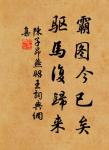 霸图今已矣
驱马复归来
陈子昂燕昭王词典网
集